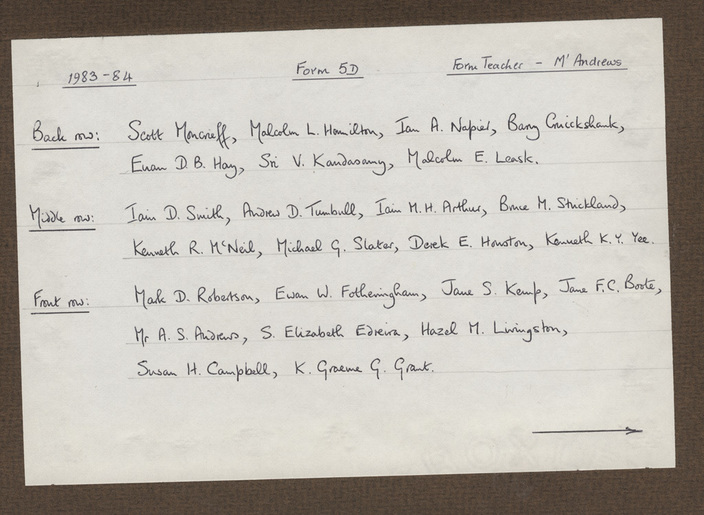 1983-84 Form 5D Form Teacher - Mr Andrews
Back row: Scott Moncrieff, Malcolm L. Hamilton, Ian A. Napier, Barry Cruickshank,
Euan D.B. Hay, Sri V. Kandasamy, Malcolm E. Leask.
Middle row: Iain D. Smith, Andrew D. Turnbull, Iain M.H. Arthur, Bruce M. Strickland,
Kenneth R. McNeil, Michael G. Slater, Derek E. Houston, Kenneth K.Y. Yee.
Front row: Mark D. Robertson, Ewan W. Fotheringham, Jane S. Kemp, Jane F.C. Boote,
Mr A.S. Andrews, S. Elizabeth Edreira, Hazel M. Livingston,
Susan H. Campbell, K. Graeme G. Grant.